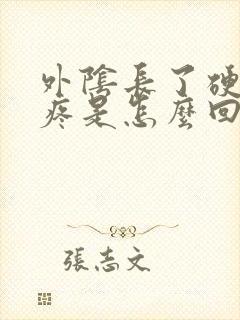 外陰長了硬
疼是怎麼回
張志文